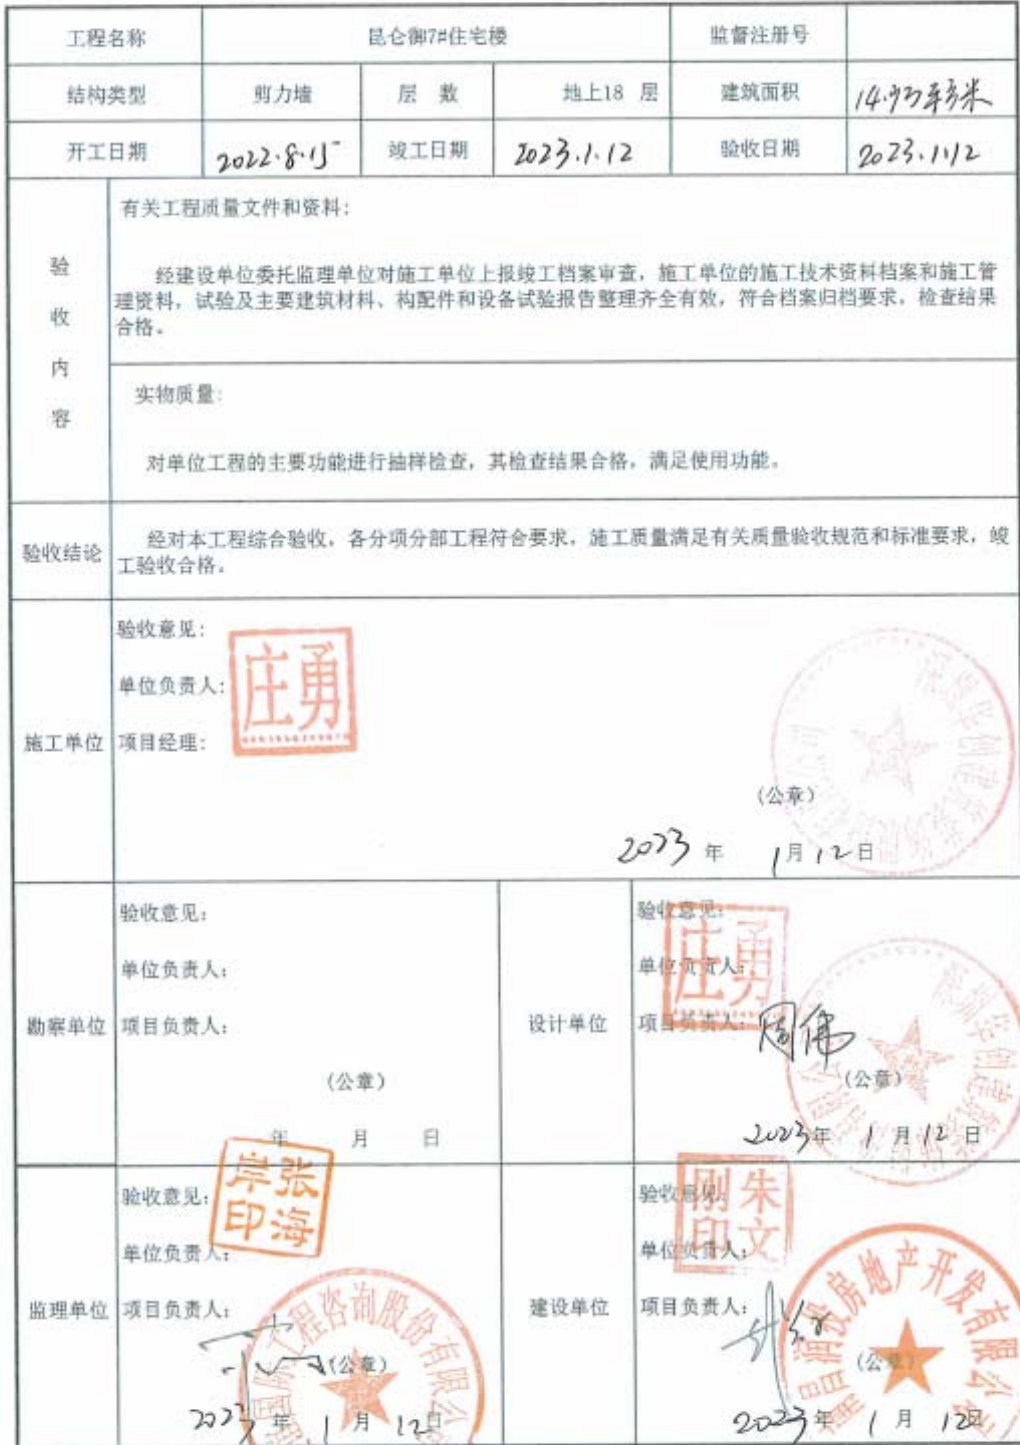 工程名称 昆仑御7#住宅楼 监督注册号
结构类型 剪力墙 层 数 地上18 层 建筑面积
开工日期 2022.8.15 竣工日期 2023.1.12 验收日期 2023.1.12
验收内容
有关工程质量文件和资料:
经建设单位委托监理单位对施工单位上报竣工档案审查，施工单位的施工技术资料档案和施工管
理资料，试验及主要建筑材料、构配件和设备试验报告整理齐全有效，符合档案归档要求，检查结果
合格。
实物质量:
对单位工程的主要功能进行抽样检查，其检查结果合格，满足使用功能。
验收结论
经对本工程综合验收，各分项分部工程符合要求，施工质量满足有关质量验收规范和标准要求，竣
工验收合格。
施工单位
验收意见:
单位负责人:
庄勇
项目经理:
(公章)
2023 年 1 月 12 日
勘察单位
验收意见:
单位负责人:
项目负责人:
(公章)
年 月 日
设计单位
验收意见:
单位负责人:
庄勇
项目负责人: 周伟
(公章)
2023 年 1 月 12 日
监理单位
验收意见:
张海岸印
单位负责人:
项目负责人:
工程咨询股份有限公
(公章)
2023 年 1 月 12 日
建设单位
验收意见:
朱文刚印
单位负责人:
项目负责人:
昌润投房地产开发有限公司
(公章)
2023 年 1 月 12 日